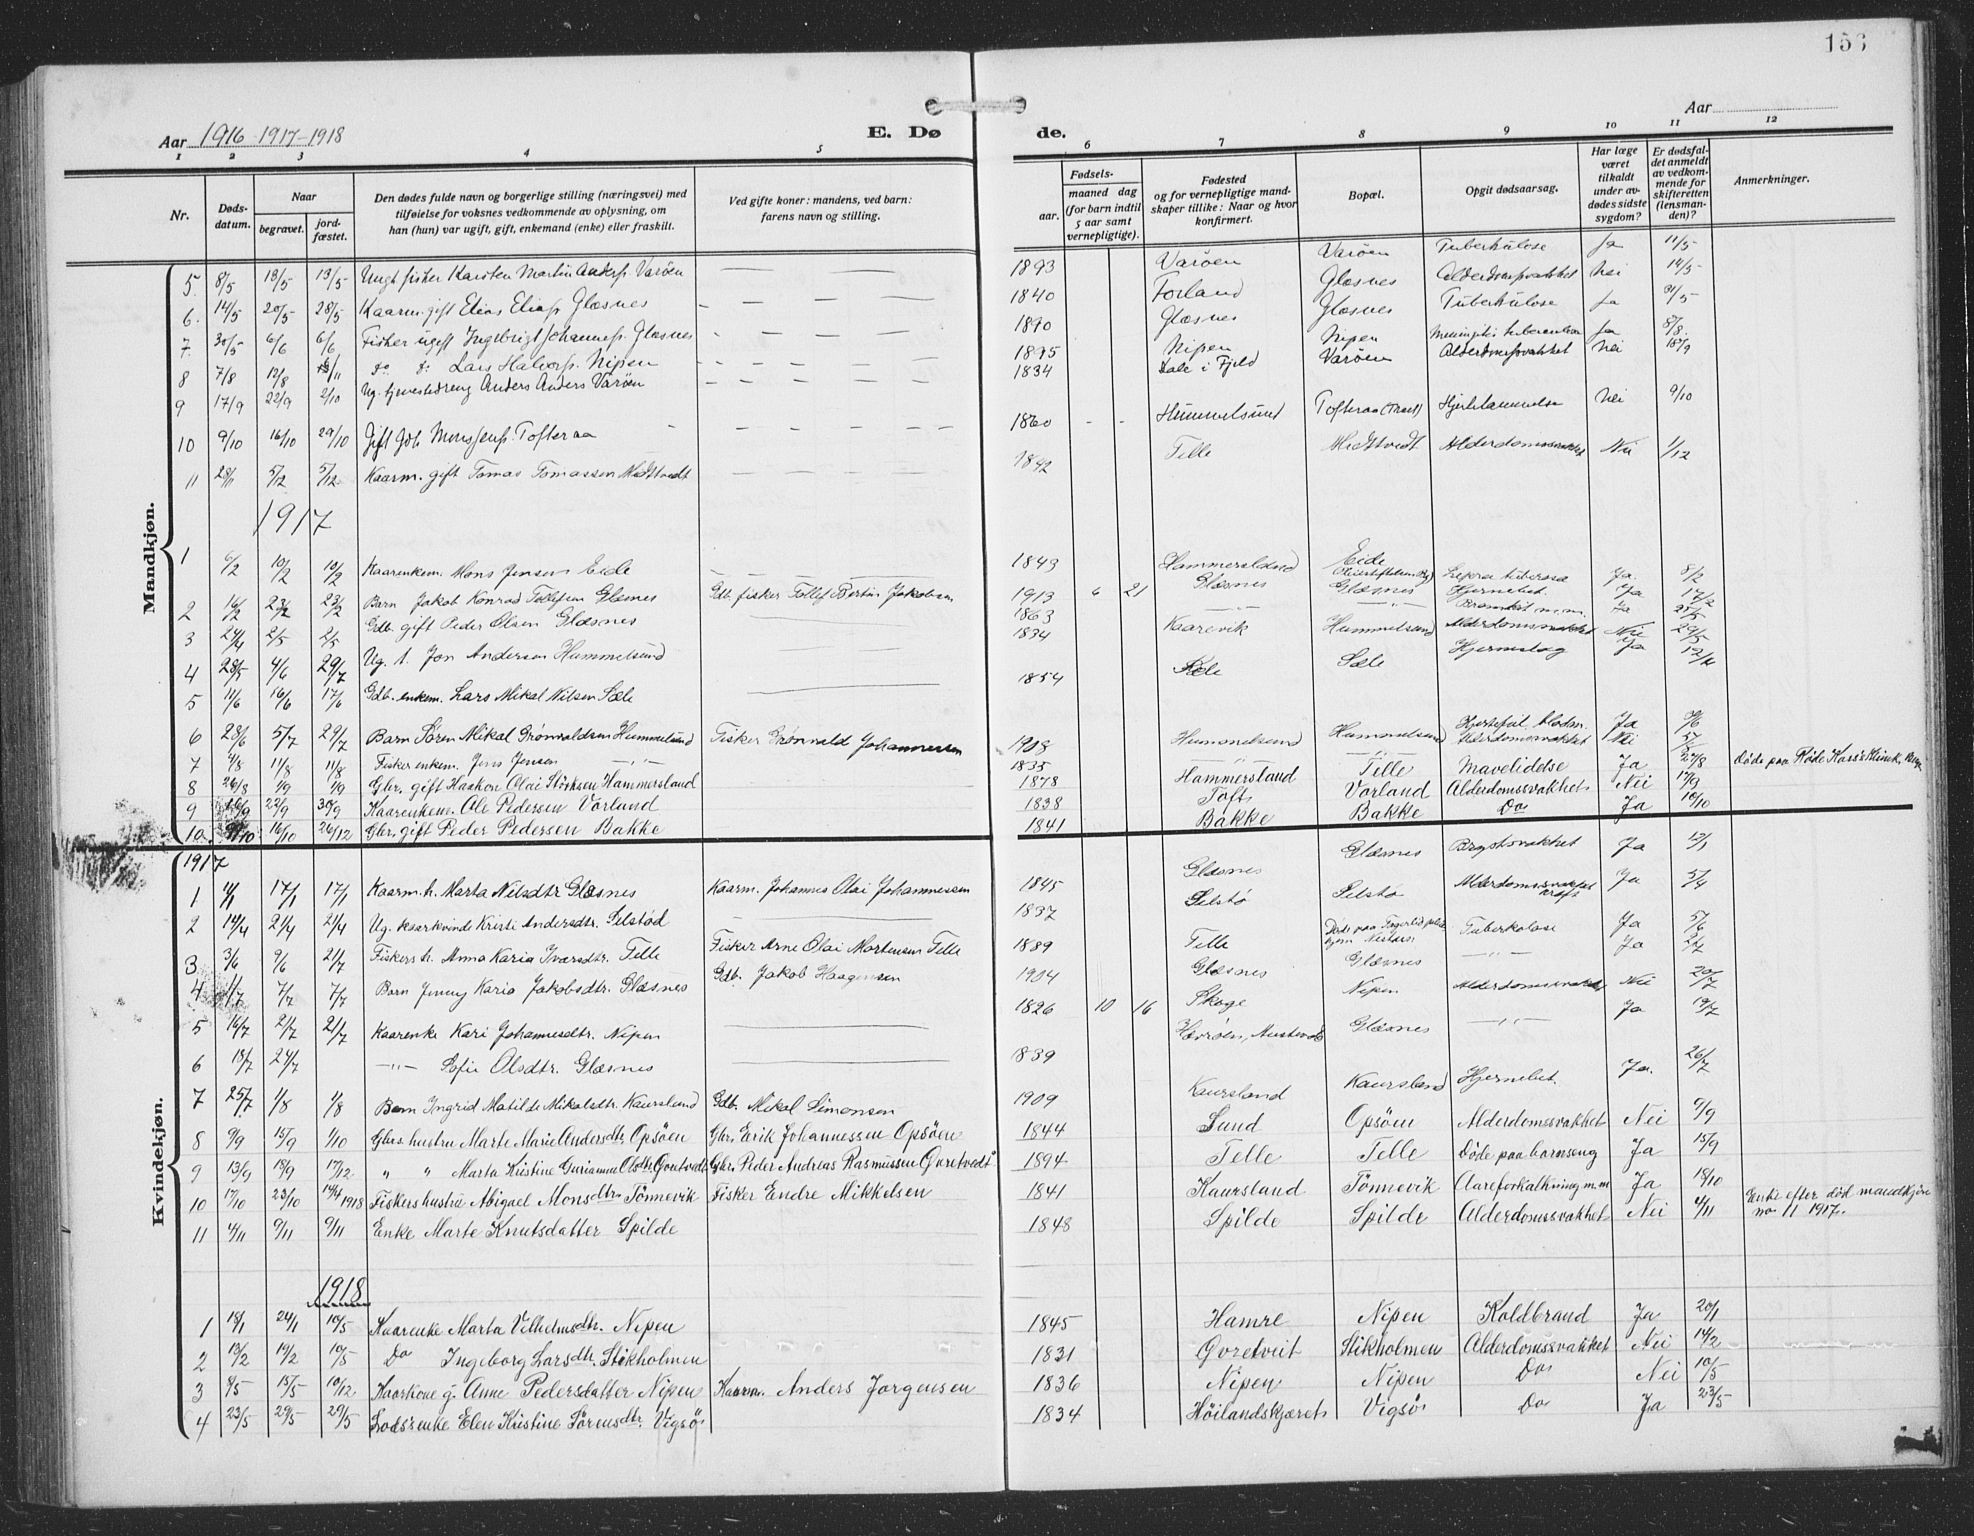 156
Aar 1916-1917-1918
E. Dø
de.
Aar
1 2 3 4 5
6 7 8 9 10 11 12
Nr.
Døds-
datum.
Naar
begravet.
jord-
fæstet.
Den dødes fulde navn og borgerlige stilling (næringsvei) med
tilføielse for voksnes vedkommende av oplysning, om
han (hun) var ugift, gift, enkemand (enke) eller fraskilt.
Ved gifte koner: mandens, ved barn:
farens navn og stilling.
Fødsels-
aar.
maaned dag
(for barn indtil
5 aar samt
vernepligtige).
Fødested
og for vernepligtige mand-
skaper tillike: Naar og hvor
konfirmert.
Bopæl.
Opgit dødsaarsag.
Har læge
været
tilkaldt
under av-
dødes sidste
sygdom?
Er dødsfal-
det anmeldt
av vedkom-
mende for
skifteretten
(lensman-
den)?
Anmerkninger.
Mandkjøn.
5 8/5 13/5 13/5 Ungk. fisker Karsten Martin Anders. Varöen 1893 Varöen Varöen Tuberkulose Ja 11/5
6 14/5 20/5 28/5 Kaarm. gift Elias Elias. Glæsnes 1840 Forland Glæsnes Alderdomssvakhet Nei 14/5
7 30/5 6/6 6/6 Fisker ugift Ingebrigt Johannes. Glæsnes 1890 Glæsnes Glæsnes Tuberkulose Ja 31/5
8 7/8 12/8 Lars Halvors. Nipen 1895 Nipen Nipen Ja 8/8
9 17/9 22/9 2/10 Ug. tjenestedreng Anders Anders Varöen 1834 Dale i Fjeld Varöen Alderdomssvakhet Nei 18/9
10 9/10 16/10 29/10 Gift Gdb. Mons Toftaraa 1860 Hummelsund Toftaraa Hjertelammelse Nei 9/10
11 28/11 5/12 5/12 Kaarm. gift Tomas Tomassen Midttvedt 1842 Telle Midttvedt Alderdomssvakhet Nei 1/12
1917
1 6/2 10/2 10/2 Kaarenkem. Mons Jensen Eide 1843 Hammersland Eide Lepra tuberosa Ja 8/2
2 16/2 23/2 23/2 Barn Jakob Konrad Tollefsen Glæsnes Gdb. fisker Tollef Bertin Jakobsen 1913 6 21 Glæsnes Glæsnes Hjernebet. Ja 17/2
3 24/4 2/5 2/5 Gdb. gift Peder Olsen Glæsnes 1863 —"— —"— Bronkit m.m. Ja 25/5
4 28/5 4/6 29/7 Ug. Jon Andersen Hummelsund 1834 Kaarevik Hummelsund Alderdomssvakhet Nei 29/5
5 11/6 16/6 17/6 Gdb. enkem. Lars Mikal Nilsen Sæle 1854 Sæle Sæle Hjerneslag Ja
6 28/6 5/7 29/7 Barn Sören Mikal Grönvaldsen Hummelsund Fisker Grönvald Johannessen 1908 Hummelsund Hummelsund Hjertefeil Ja
7 4/8 11/8 11/8 Fisker enkem. Jens Jensen —"— 1835 —"— Alderdomssvakhet Nei
8 26/8 1/9 1/9 Gbr. gift Haakon Olai Störksen Hammersland 1878 Hammersland Telle Mavelidelse Ja 27/8 Døde paa Røde Kors's Klinik,
9 16/9 22/9 30/9 Kaarenkem. Ole Pedersen Vorland 1838 Toft Vorland Alderdomssvakhet Nei 17/9
10 9/10 16/10 26/12 Gbr. gift Peder Pedersen Bakke 1841 Bakke Bakke Do Ja 10/10
Kvindekjøn.
1917
1 11/1 17/1 17/1 Kaarm. h. Marta Nilsdtr Glæsnes Kaarm. Johannes Olai Johannessen 1845 Glæsnes Glæsnes Brystsvakhet Ja 13/1
2 14/4 21/4 21/4 Ug. kaarkvinde Kristi Andersdtr. Selstød 1837 Selstö Selstö Alderdomssvakhet kræft Ja 5/4
3 3/6 9/6 21/7 Fiskers h. Anna Karia Ivarsdtr. Telle Fisker Arne Olai Mortensen Telle 1889 Telle Tuberkolose Ja 5/6
4 1/7 7/7 7/7 Barn Jenny Karia Jakobsdtr. Glæsnes Gdb. Jakob Haagensen 1904 Glæsnes Glæsnes —"— Ja 2/7
5 16/7 21/7 21/7 Kaarenke Kari Johannesdtr. Nipen 1826 10 16 Skoge Nipen Alderdomssvakhet Nei 20/7
6 18/7 24/7 —"— Sofie Olsdtr. Glæsnes 1839 Hevröen, Austevold Glæsnes —"— Ja 19/7
7 25/7 1/8 1/8 Barn Ingrid Matilde Mikalsdtr. Kaursland Gdb. Mikal Simonsen 1909 Kaursland Kaursland Hjernebet. Ja. 26/7
8 9/9 15/9 1/10 Gbrs. hustru Marte Marie Andersdtr. Opsöen Gbr. Erik Johannessen Opsöen 1844 Sund Opsöen Alderdomssvakhet Nei 9/9
9 13/9 18/9 17/12 " " Marta Kristine Gurianna Olsdtr. Govetvedt Gbr. Peder Andreas Rasmussen Govetvedt 1894 Telle Telle Døde paa barnseng Ja 15/9
10 17/10 23/10 14/4 1918 Fiskers hustru Abigael Monsdtr. Tönnevik Fisker Endre Mikkelsen 1841 Kaursland Tönnevik Aareforkalkning m.m Ja 18/10
11 4/11 9/11 9/11 Enke Marte Knutsdatter Spilde 1848 Spilde Spilde Alderdomssvakhet Nei 4/11 Enke efter død mandkjön
no 11 1917.
1918
1 18/1 24/1 10/5 Kaarenke Marta Vilhelmsdtr. Nipen 1845 Hamre Nipen Koldbrand Ja 20/1
2 13/2 19/2 10/5 Do Ingeborg Larsdtr. Stikholmen 1831 Govetveit Stikholmen Alderdomssvakhet Nei 14/2
3 8/5 15/5 10/12 Kaarkone g. Anne Pedersdatter Nipen Kaarm. Anders Jorgensen 1836 Nipen Nipen Do Nei 10/5
4 23/5 29/5 29/5 Lodsenke Elen Kristine Sörensdtr. Vigsö 1834 Höilandskjæret Vigsö Do Ja 23/5